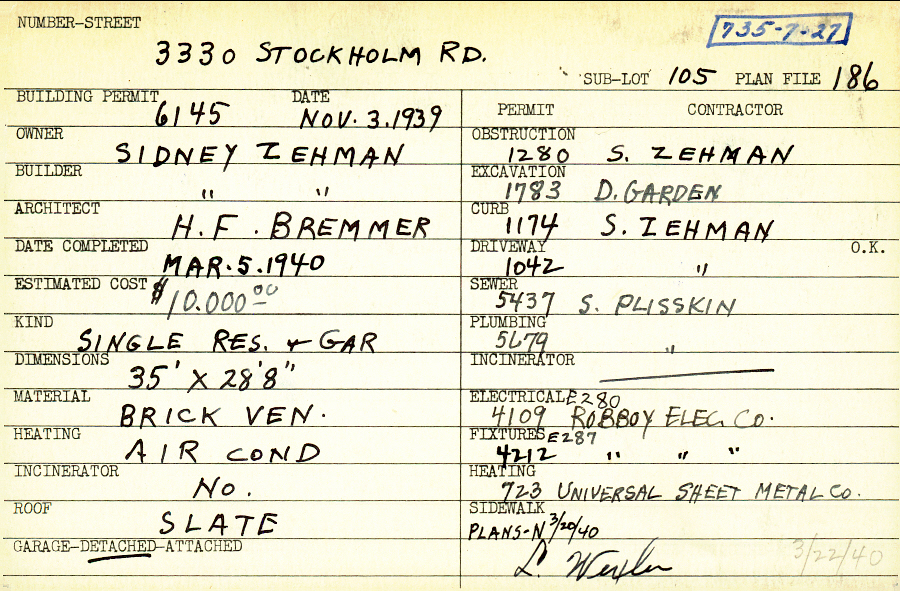 NUMBER-STREET
735-7-27
3330 STOCKHOLM RD.
SUB-LOT 105 PLAN FILE 186
BUILDING PERMIT DATE
6145 NOV. 3.1939
OWNER
SIDNEY ZEHMAN
BUILDER
" "
ARCHITECT
H. F. BREMMER
DATE COMPLETED
MAR. 5. 1940
ESTIMATED COST $10.000 00
KIND
SINGLE RES. & GAR
DIMENSIONS
35' X 28'8"
MATERIAL
BRICK VEN.
HEATING
AIR COND
INCINERATOR
No.
ROOF
SLATE
GARAGE-DETACHED-ATTACHED
PERMIT CONTRACTOR
OBSTRUCTION
1280 S. ZEHMAN
EXCAVATION
1783 D. GARDEN
CURB
1174 S. ZEHMAN
DRIVEWAY O.K.
1042 "
SEWER
5437 S. PLISSKIN
PLUMBING
5679 "
INCINERATOR
ELECTRICAL E280
4109 ROBBOY ELEC. CO.
FIXTURES E287
4212 " " "
HEATING
723 UNIVERSAL SHEET METAL CO.
SIDEWALK
PLANS-N 3/20/40
3/22/40